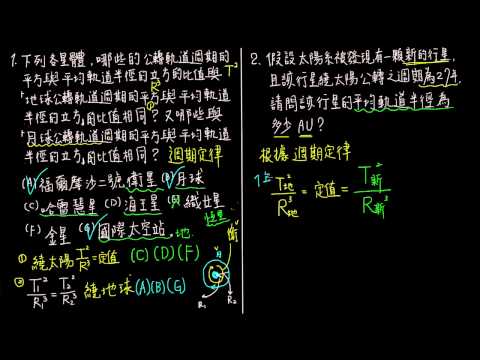 1.下列各星體,哪些的公轉軌道週期的
平方與平均軌道半徑的立方的比值與 T²
R³
「地球公轉軌道週期的平方與平均軌道
半徑的立方的比值相同?又哪些與
「月球公轉軌道週期的平方與平均軌道
半徑的立方的比值相同? 週期定律
(A)福爾摩沙二號衛星 (B)月球
(C)哈雷慧星 (D)海王星 (E)織女星
恆星
(F)金星 (G)國際太空站.地
① 繞太陽 T²/R³=定值 (C)(D)(F)
② T₁²/R₁³=T₂²/R₂³ 繞地球(A)(B)(G)
R₁ R₂
2.假設太陽系被發現有一顆新的行星,
且該行星繞太陽公轉之週期為27年,
請問該行星的平均軌道半徑為
多少 AU?
根據 週期定律
T地²/R地³ = 定值 = T新²/R新³